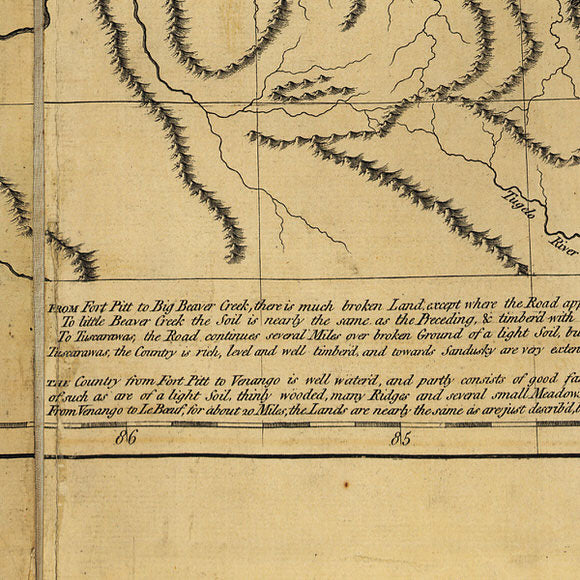 Tugelo
River
FROM Fort Pitt to Big Beaver Creek, there is much broken Land, except where the Road app
To little Beaver Creek the Soil is nearly the same as the Preceding, & timber'd with
To Tuscarawas, the Road continues several Miles over broken Ground of a light Soil, bu
Tuscarawas, the Country is rich, level and well timber'd, and towards Sandusky are very exten
THE Country from Fort Pitt to Venango is well water'd, and partly consists of good fa
of such as are of a light Soil, thinly wooded, many Ridges and several small Meadow
From Venango to Le Bœuf, for about 20 Miles, the Lands are nearly the same as are just describ'd,
86
85